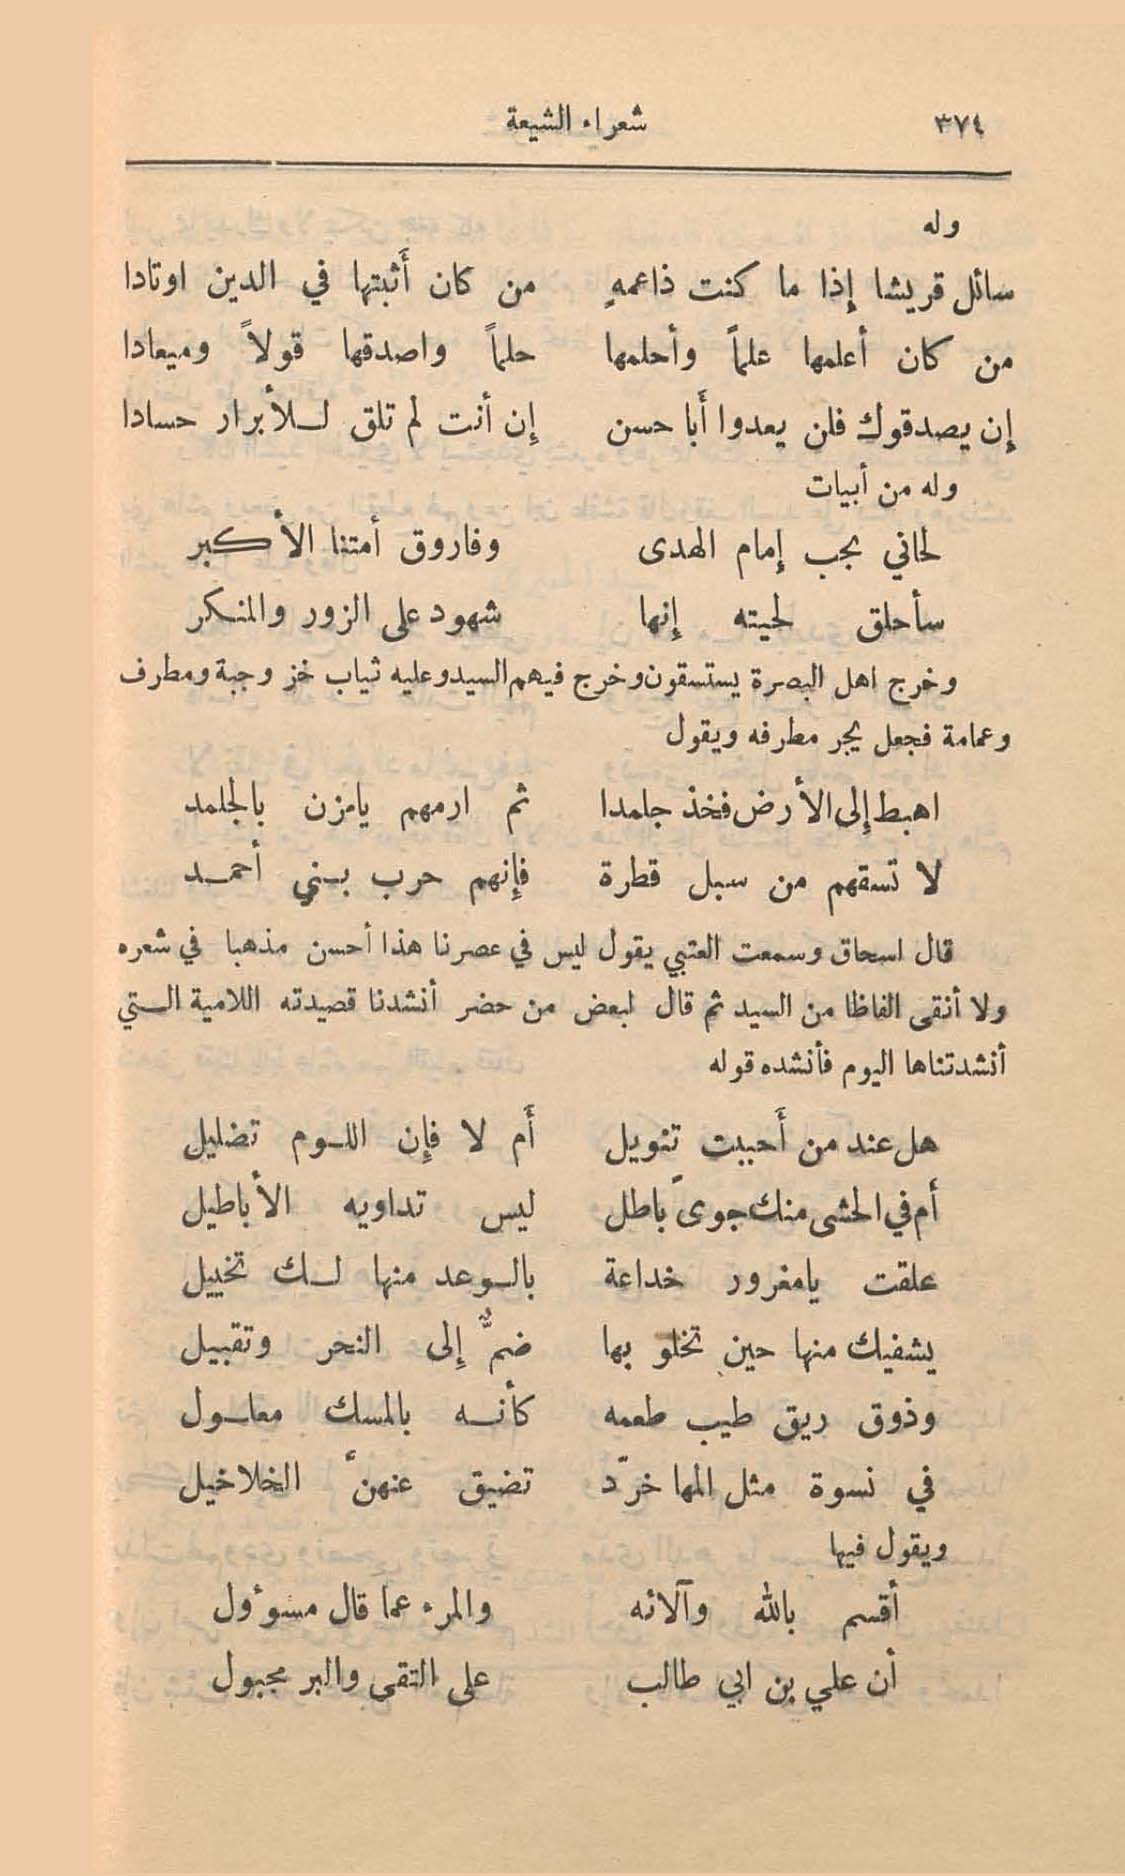 ٣٧٤ شعراء الشيعة
وله
سائل قريشا إذا ما كنت ذاعمهٍ من كان أَثبتها في الدين اوتادا
من كان أعلمها علماً وأحلمها حلماً واصدقها قولاً وميعادا
إن يصدقوك فلن يعدوا أَبا حسن إن أنت لم تلق للأبرار حسادا
وله من أبيات
لحاني بحب إمام الهدى وفاروق أمتنا الأكبر
سأحلق لحيته إنها شهود على الزور والمنكر
وخرج اهل البصرة يستسقون وخرج فيهم السيد وعليه ثياب خز وجبة ومطرف
وعمامة فجعل يجر مطرفه ويقول
اهبط إلى الأرض فخذ جلمدا ثم ارمهم يامزن بالجلمد
لا تسقهم من سبل قطرة فإنهم حرب بني أحمد
قال اسحاق وسمعت العتبي يقول ليس في عصرنا هذا أحسن مذهبا في شعره
ولا أنقى الفاظا من السيد ثم قال لبعض من حضر أنشدنا قصيدته اللامية التي
أنشدتناها اليوم فأنشده قوله
هل عند من أَحببت تنويل أَم لا فإن اللوم تضليل
أم في الحشى منك جوىً باطل ليس تداويه الأباطيل
علقت يامغرور خداعة بالوعد منها لك تخييل
يشفيك منها حين تخلو بها ضمٌّ إلى النحر وتقبيل
وذوق ريق طيب طعمه كأنه بالمسك معلول
في نسوة مثل المها خرّد تضيق عنهنَّ الخلاخيل
ويقول فيها
أقسم بالله وآلائه والمرء عما قال مسوءول
أن علي بن ابي طالب على التقى والبر مجبول